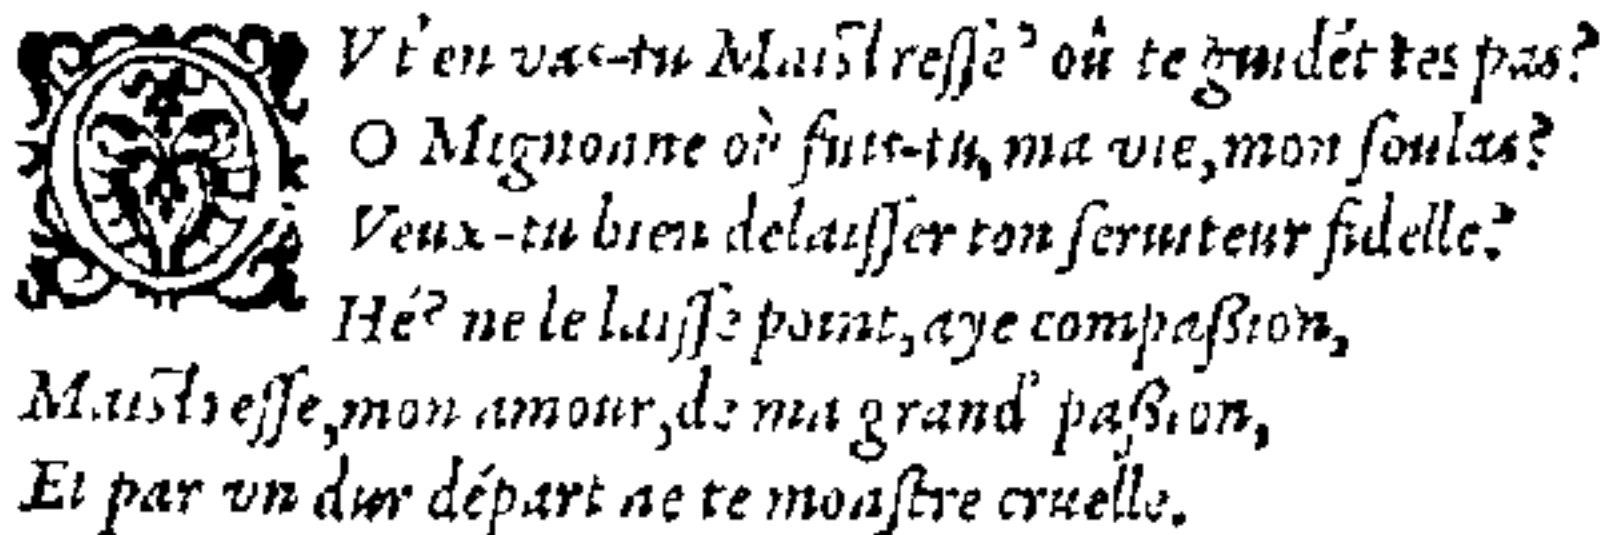 OV t'en vas-tu Maistresse? où te guidét tes pas?
O Mignonne où fuis-tu, ma vie, mon soulas?
Veux-tu bien delaisser ton seruiteur fidelle?
Hé? ne le laisse point, aye compaßion,
Maistresse, mon amour, de ma grand' paßion,
Et par vn dur départ ne te monstre cruelle.